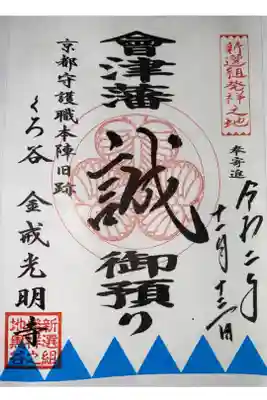 新選組発祥之地
奉寄進
令和二年
十一月十三日
會津藩
誠
御預り
京都守護職本陣旧跡
くろ谷 金戒光明寺